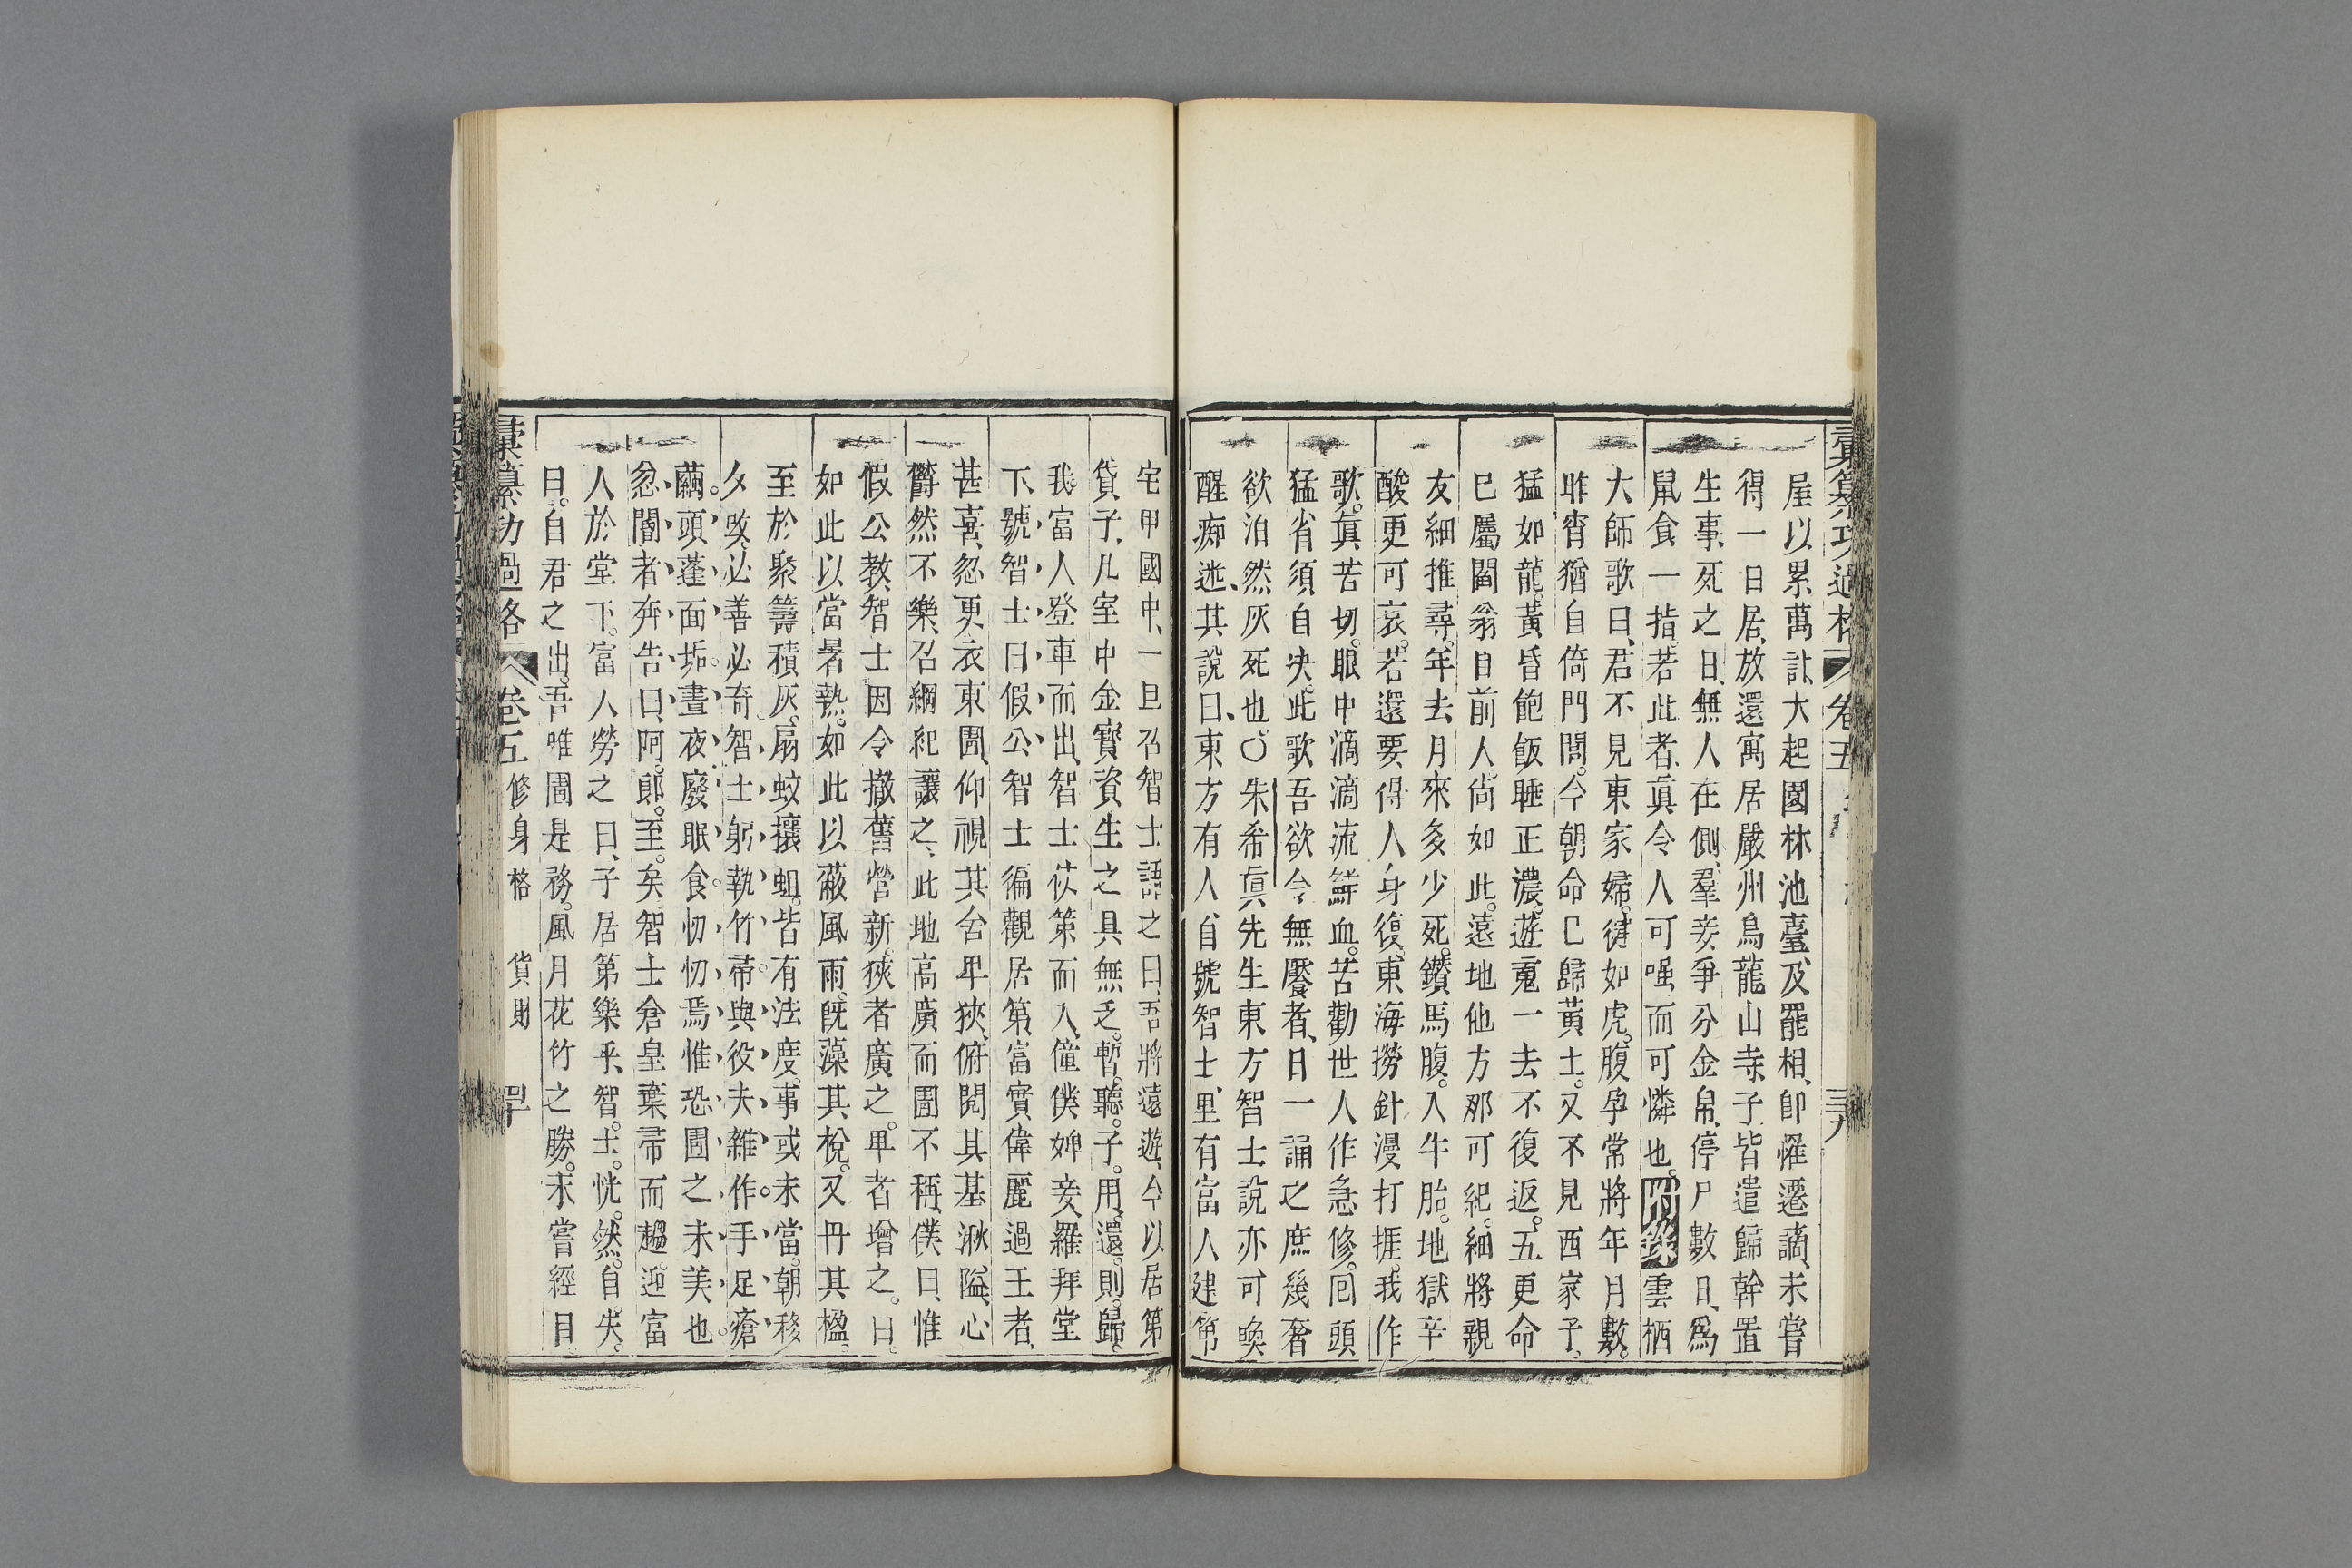 彙纂功過格 卷五 三十九
屋以累萬計大起園林池臺及罷相卽懼遷謫未嘗
得一日居放還寓居嚴州烏龍山寺子皆遣歸幹置
生事死之日無人在側羣妾爭分金帛停尸數日爲
鼠食一指若此者眞令人可嗤而可憐也附錄雲栖
大師歌曰君不見東家婦健如虎腹孕常將年月數
昨宵猶自倚門閭今朝命已歸黃土又不見西家子
猛如龍黃昏飽飯睡正濃遊寃一去不復返五更命
已屬閻翁目前人尙如此遠地他方那可紀細將親
友細推尋年去月來多少死鑽馬腹入牛胎地獄辛
酸更可哀若還要得人身復東海撈針漫打捱我作
歌眞苦切眼中滴滴流鮮血苦勸世人作急修回頭
猛省須自决此歌吾欲令無饜者日一誦之庶幾奢
欲泊然灰死也〇朱希眞先生東方智士說亦可喚
醒痴迷其說曰東方有人自號智士里有富人建第
宅甲國中一旦召智士語之曰吾將遠遊今以居第
貸子凡室中金寶資生之具無乏暫聽子用還則歸
我富人登車而出智士杖策而入僮僕婢妾羅拜堂
下號智士曰假公智士徧觀居第富實偉麗過王者
甚喜忽更衣東圊仰視其舍卑狹俯閱其基湫隘心
欝然不樂召綱紀讓之此地高廣而圊不稱僕曰惟
假公教智士因令撤舊營新狹者廣之卑者增之曰
如此以當暑熱如此以蔽風雨旣藻其梲又丹其楹
至於聚籌積灰扇蚊攘蛆皆有法度事或未當朝移
夕改必善必奇智士躬執竹帚與役夫雜作手足瘡
繭頭蓬面垢晝夜廢眠食忉忉焉惟恐圊之未美也
忽閽者奔告曰阿郎至矣智士倉皇棄帚而趨迎富
人於堂下富人勞之曰子居第樂乎智士恍然自失
曰自君之出吾唯圊是務風月花竹之勝未嘗經目
彙纂功過格 卷五 修身格 貨財 四十